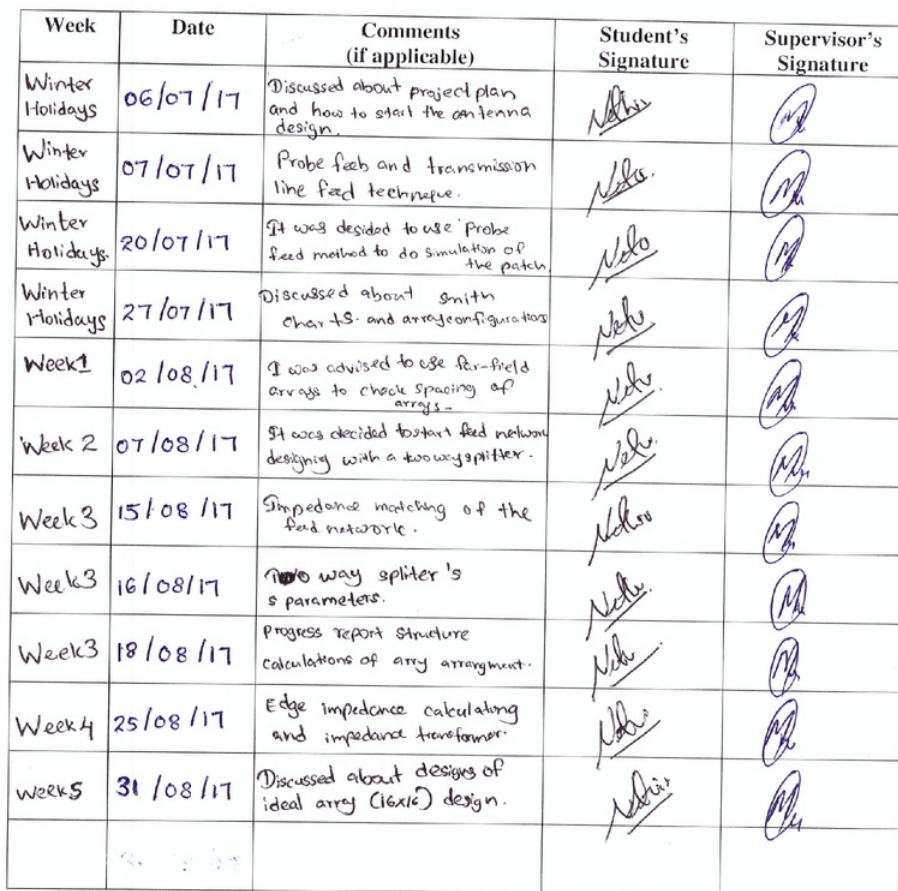 Week Date Comments (if applicable) Student's Signature Supervisor's Signature
Winter Holidays 06/07/17 Discussed about project plan
and how to start the antenna
design.
Winter Holidays 07/07/17 Probe feeb and transmission
line feed technqeue.
Winter Holidays. 20/07/17 It was desided to use Probe
feed method to do simulation of
the patch
Winter Holidays 27/07/17 Discussed about smith
charts. and array configurations
Week 1 02/08/17 I was advised to use far-field
arrays to check spacing of
arrays-
Week 2 07/08/17 It was decided to start feed network
designing with a two way splitter.
Week 3 15/08/17 Impedance matching of the
feed network.
Week 3 16/08/17 Two way spliter's
s parameters.
Week 3 18/08/17 Progress report structure
calculations of arry arrangment.
Week 4 25/08/17 Edge impedance calculating
and impedance transformer.
Week 5 31/08/17 Discussed about designs of
ideal arry (16x16) design.